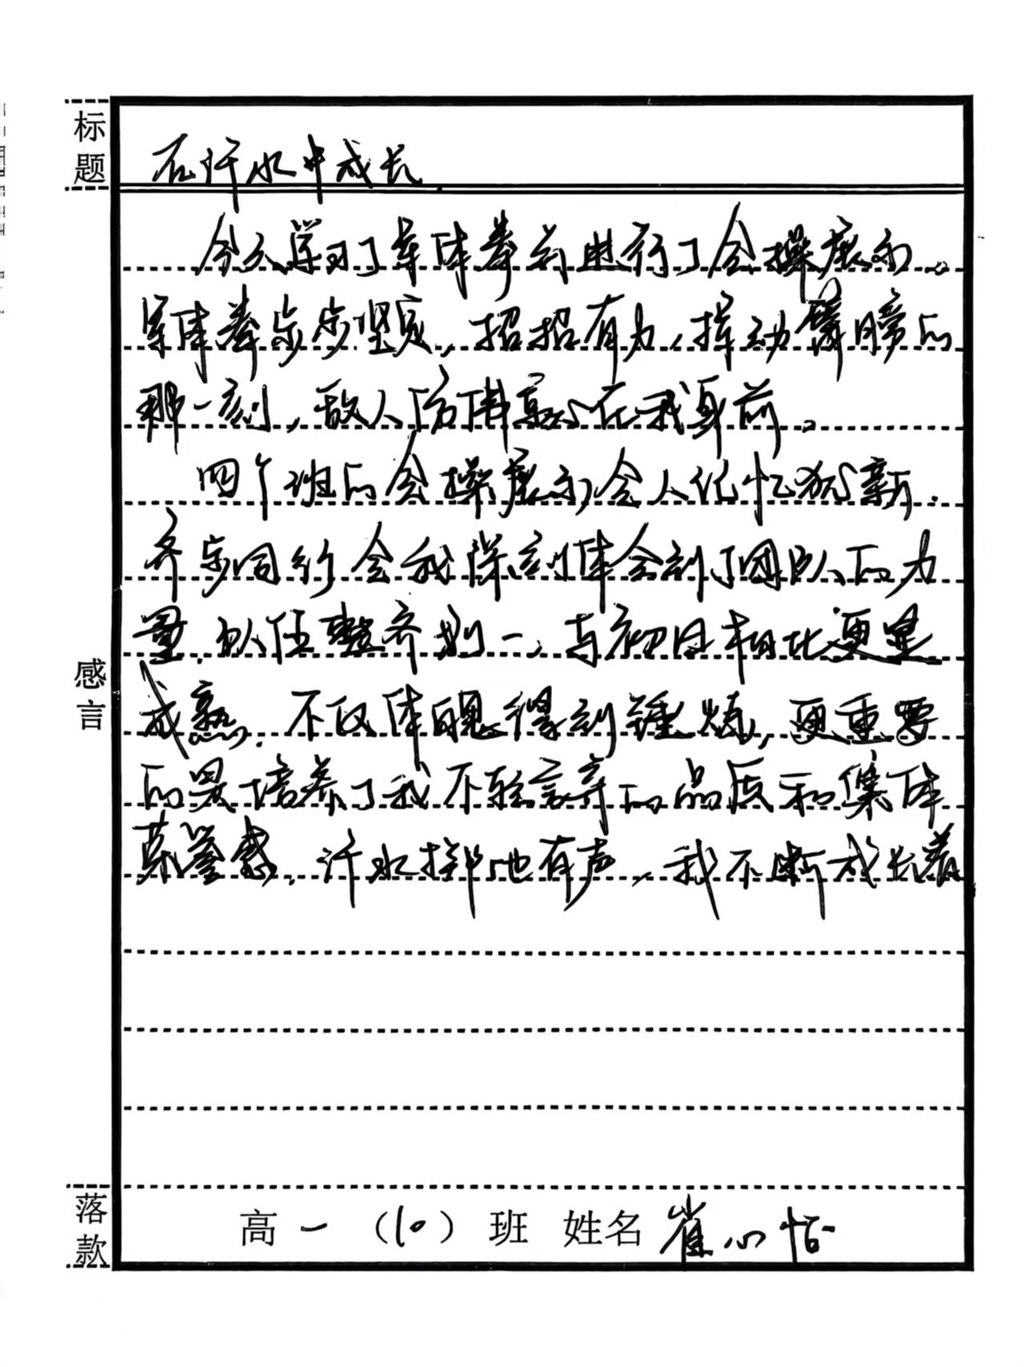 标题
在汗水中成长
今天学习了军体拳并进行了会操展示。
军体拳步步坚定，招招有力，挥动臂膀的
那一刻，敌人仿佛就在我身前。
四个班的会操展示令人记忆犹新.
齐步同行会我深刻体会到了团队的力
量.队伍整齐划一，与初日相比更是
成熟.不仅体魄得到锤炼,更重要
的是培养了我不轻言弃的品质和集体
荣誉感.汗水掷地有声，我不断成长着
感言
落款
高一（10）班 姓名 崔心恬